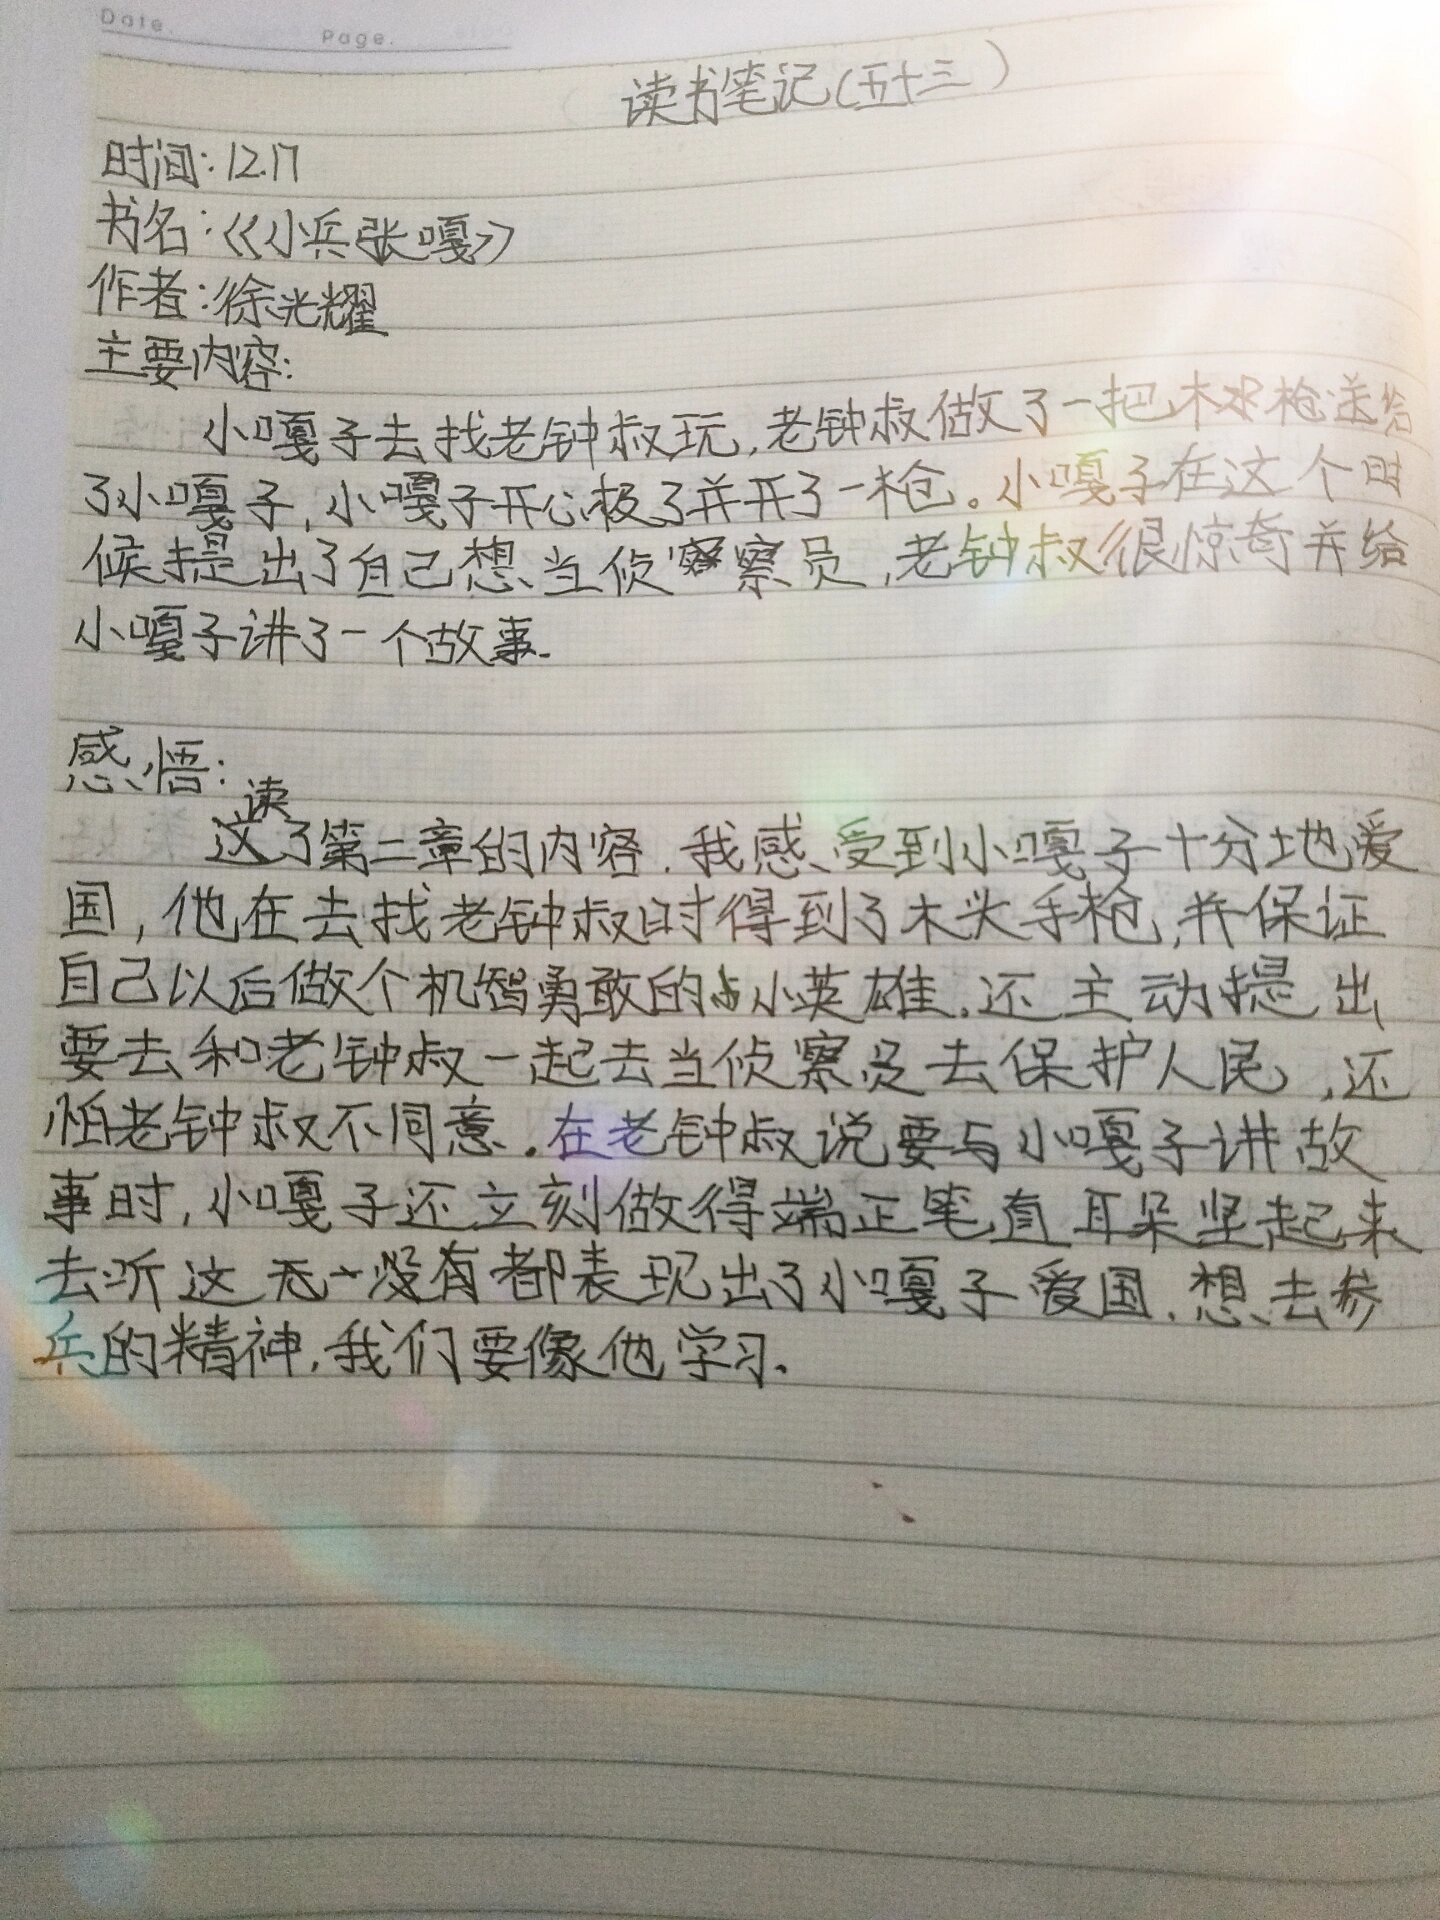 Date.
Page.
读书笔记(五十三)
时间:12.17
书名:《小兵张嘎》
作者:徐光耀
主要内容:
小嘎子去找老钟叔玩,老钟叔做了一把木枪送给
了小嘎子,小嘎子开心极了并开了一枪。小嘎子在这个时
候提出了自己想当侦察员,老钟叔很惊奇并给
小嘎子讲了一个故事.
感悟:
读了第二章的内容.我感受到小嘎子十分地爱
国,他在去找老钟叔时得到了木头手枪,并保证
自己以后做个机智勇敢的小英雄.还主动提出
要去和老钟叔一起去当侦察员去保护人民,还
怕老钟叔不同意.在老钟叔说要与小嘎子讲故
事时,小嘎子还立刻做得端正笔直耳朵坚起来
去听这无一没有都表现出了小嘎子爱国.想去参
兵的精神.我们要像他学习.